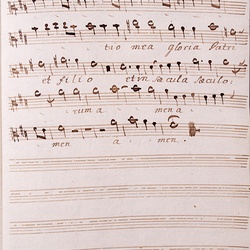 trio mea gloria Patri
et filio et in sæcula sæculo:
rum a men a
men a men.